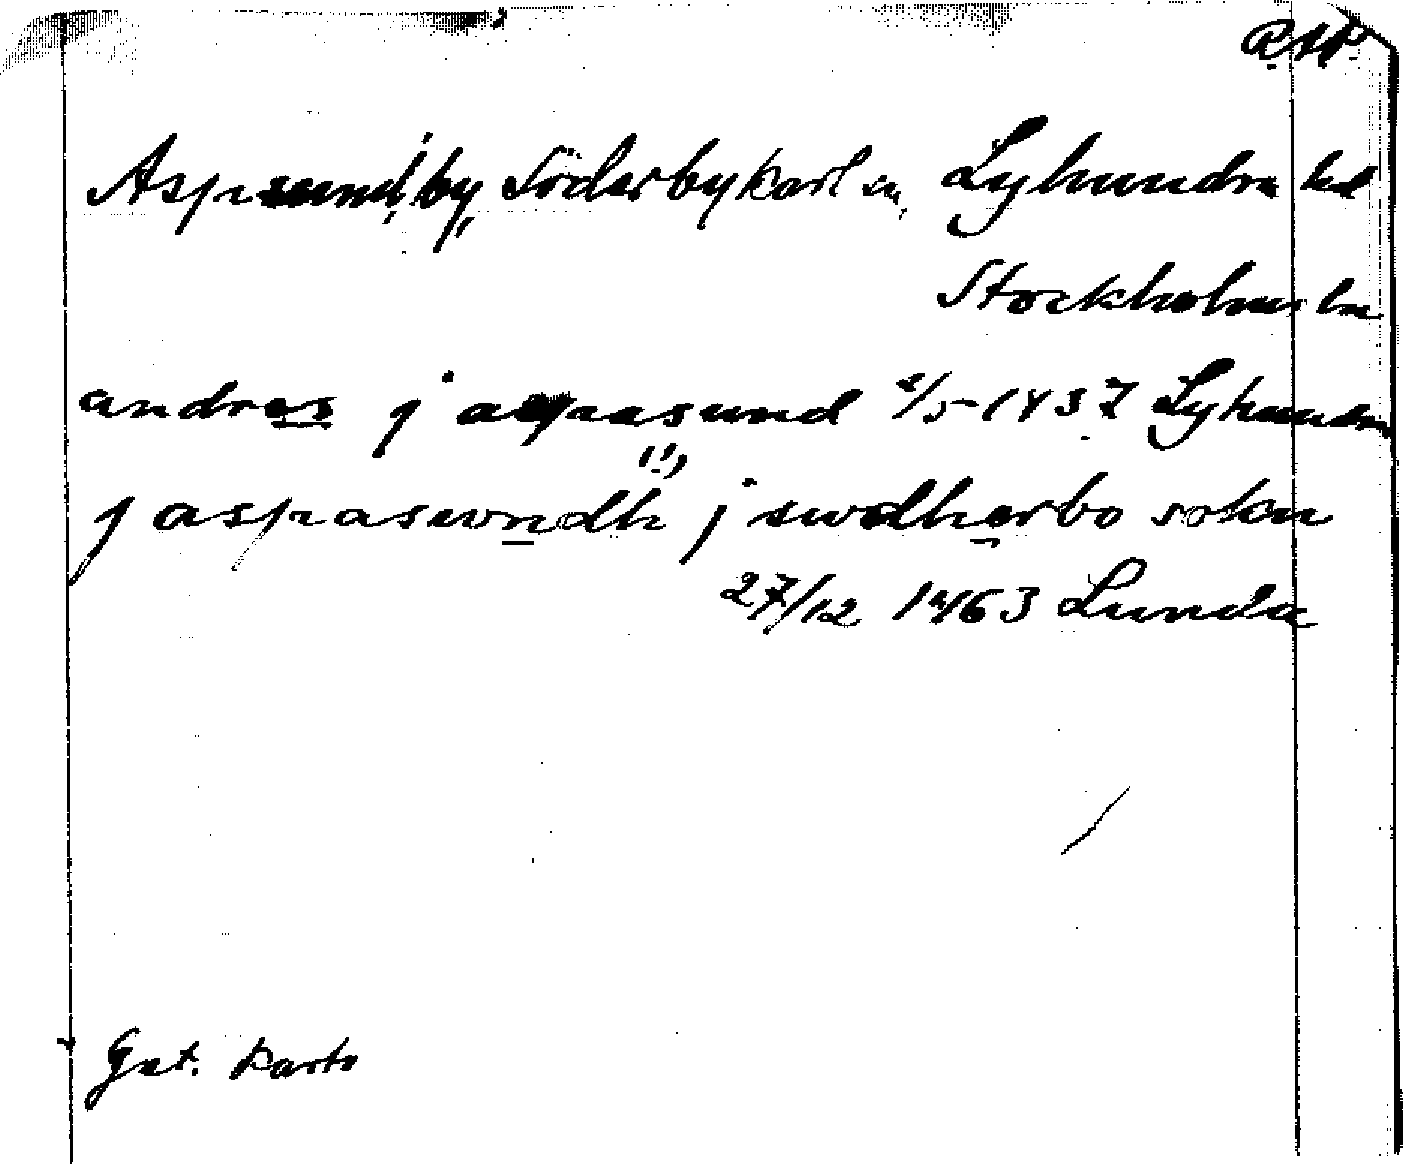 Aspsund by, Söderbykarl sn, Lyhundra hd
Stockholms län
andres j aspasund 2/5 1437 Lyhundra
j aspaswndh j swdherbo sokn
27/12 1463 Lunda
Gst. karta